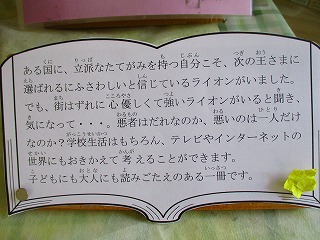 ある国に、立派なたてがみを持つ自分こそ、次の王さまに
選ばれるにふさわしいと信じているライオンがいました。
でも、街はずれに心優しくて強いライオンがいると聞き、
気になって・・・。悪者はだれなのか、悪いのは一人だけ
なのか？学校生活はもちろん、テレビやインターネットの
世界にもおきかえて考えることができます。
子どもにも大人にも読みごたえのある一冊です。